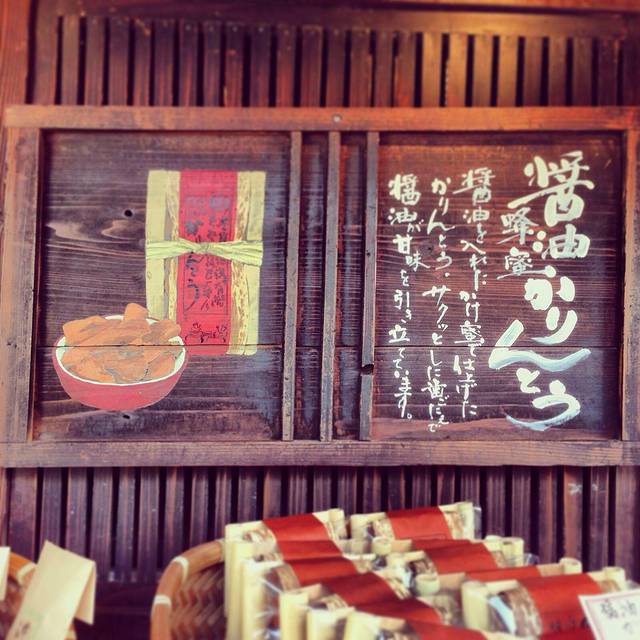 醤油かりんとう
蜂蜜
醤油を入れたかけ蜜で仕上げた
かりんとう。サクッとした歯ごたえで
醤油が甘味を引き立てています。